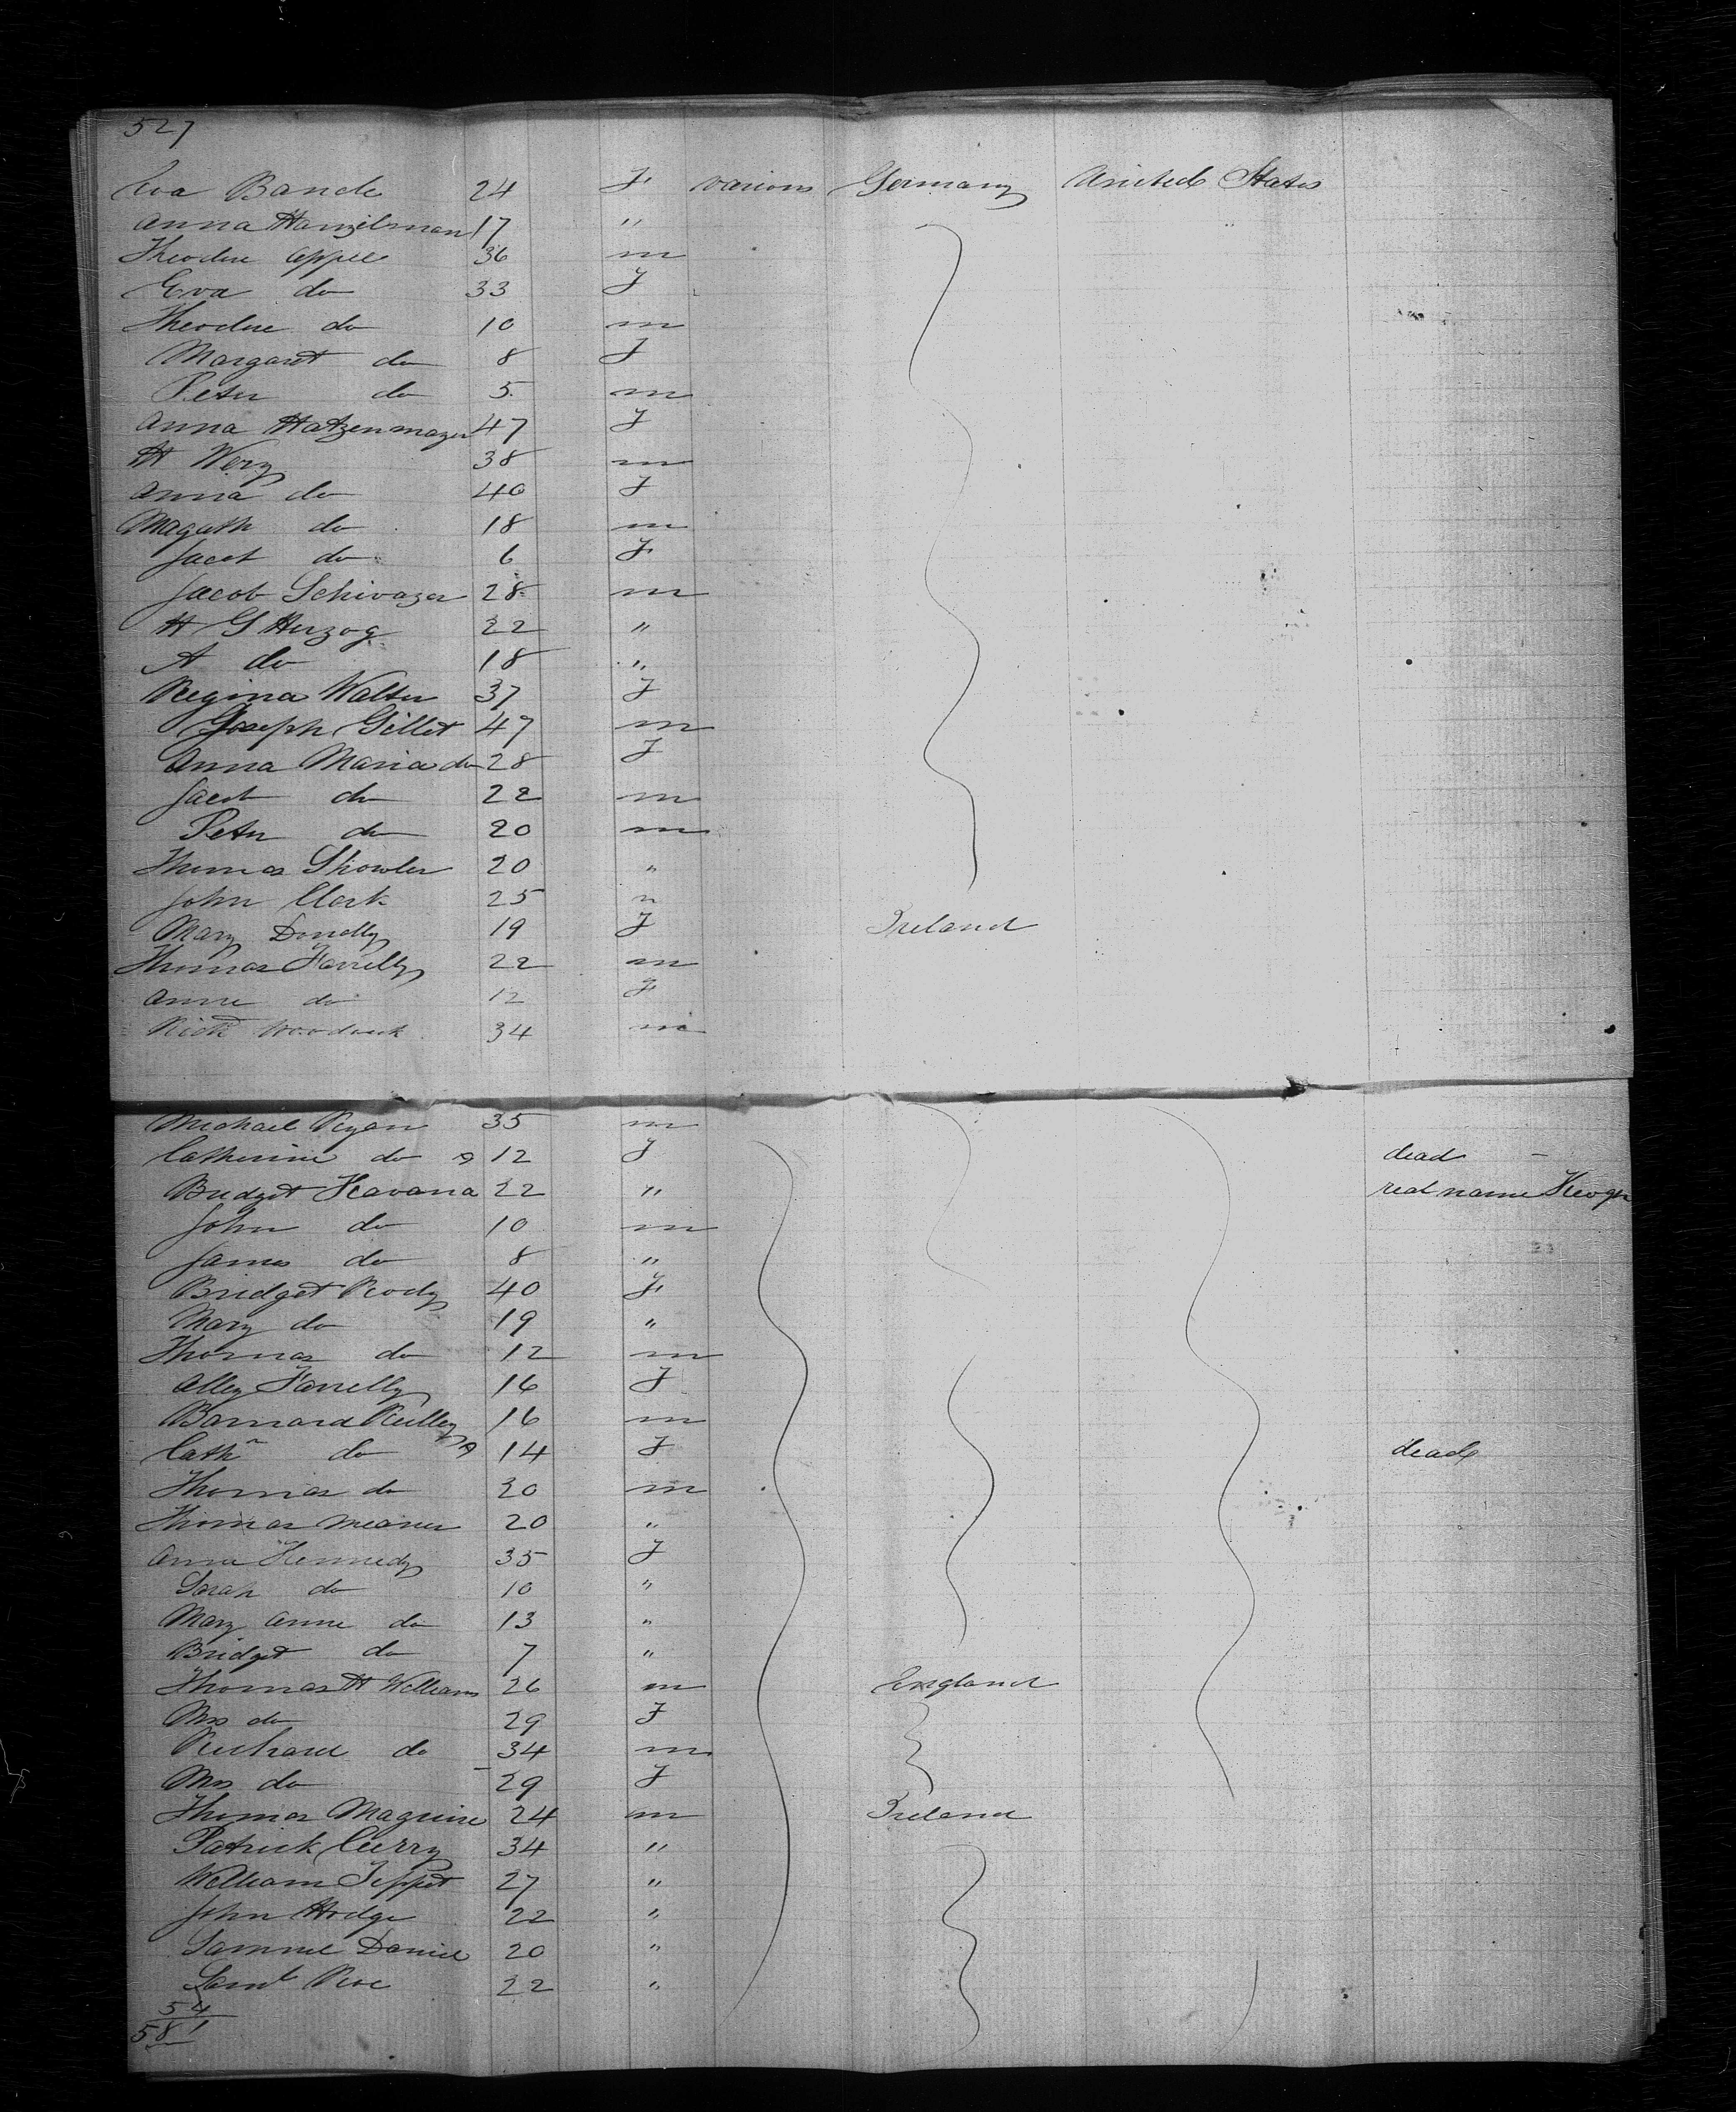 527
Eva Bande 24 F various Germany United States
Anna Hanzelman 17 "
Theodore Appel 36 m
Eva do 33 F
Theodore do 10 m
Margaret do 8 F
Peter do 5 m
Anna Hatzenmazer 47 F
H Werz 38 m
Anna do 40 F
Magath do 18 m
Jacob do 6 F
Jacob Schivazer 28 m
H G Herzog 22 "
A do 18 "
Regina Walter 37 F
Joseph Gillet 47 m
Anna Maria do 28 F
Jacob do 22 m
Peter do 20 m
Thomas Showler 20 "
John Clark 25 "
Mary Donelly 19 F Ireland
Thomas Farrelly 22 m
Anne do 12 F
Richd 34 m
Michael Ryan 35 m
Catherine do 12 F dead
Bridget Kavana 22 " real name
John do 10 m
James do 8 "
Bridget Rody 40 F
Mary do 19 "
Thomas do 12 m
Alley Farrelly 16 F
Barnard Reilley 16 m
Cathn do 14 F dead
Thomas do 20 m
Thomas Meaner 20 "
Anna Kennedy 35 F
Sarah do 10 "
Mary Anne do 13 "
Bridget do 7 "
Thomas H Williams 26 m England
Mrs do 29 F
Richard do 34 m
Mrs do 29 F
Thomas Maguire 24 m Ireland
Patrick Curry 34 "
William Teppet 27 "
John Hodge 22 "
Sammel Daniel 20 "
Saml Roe 22 "
54
581